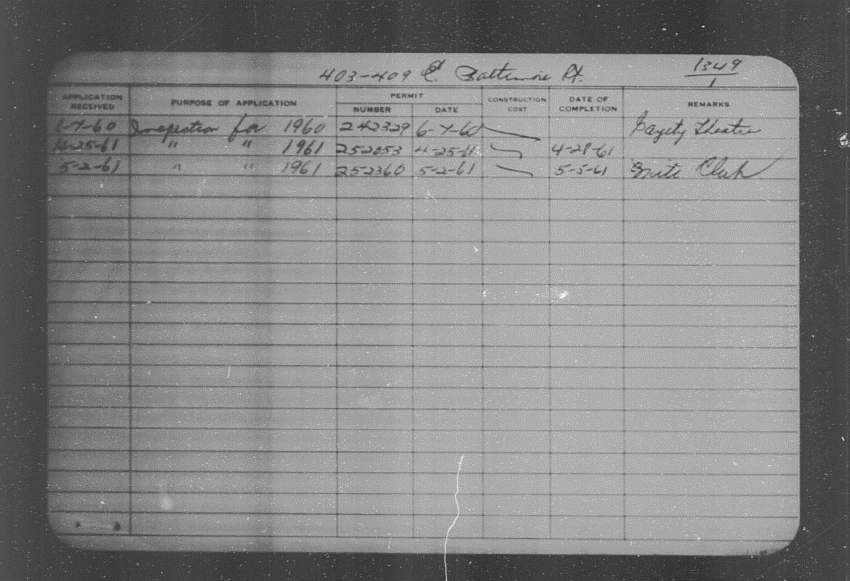 403-409 E. Baltimore St.
1349
1
APPLICATION RECEIVED PURPOSE OF APPLICATION PERMIT NUMBER DATE CONSTRUCTION COST DATE OF COMPLETION REMARKS
6-7-60 Inspection for 1960 242329 6-7-60 Gayety Theatre
4-25-61 " " 1961 252053 4-25-61 4-28-61
5-2-61 " " 1961 252360 5-2-61 5-5-61 Nite Club